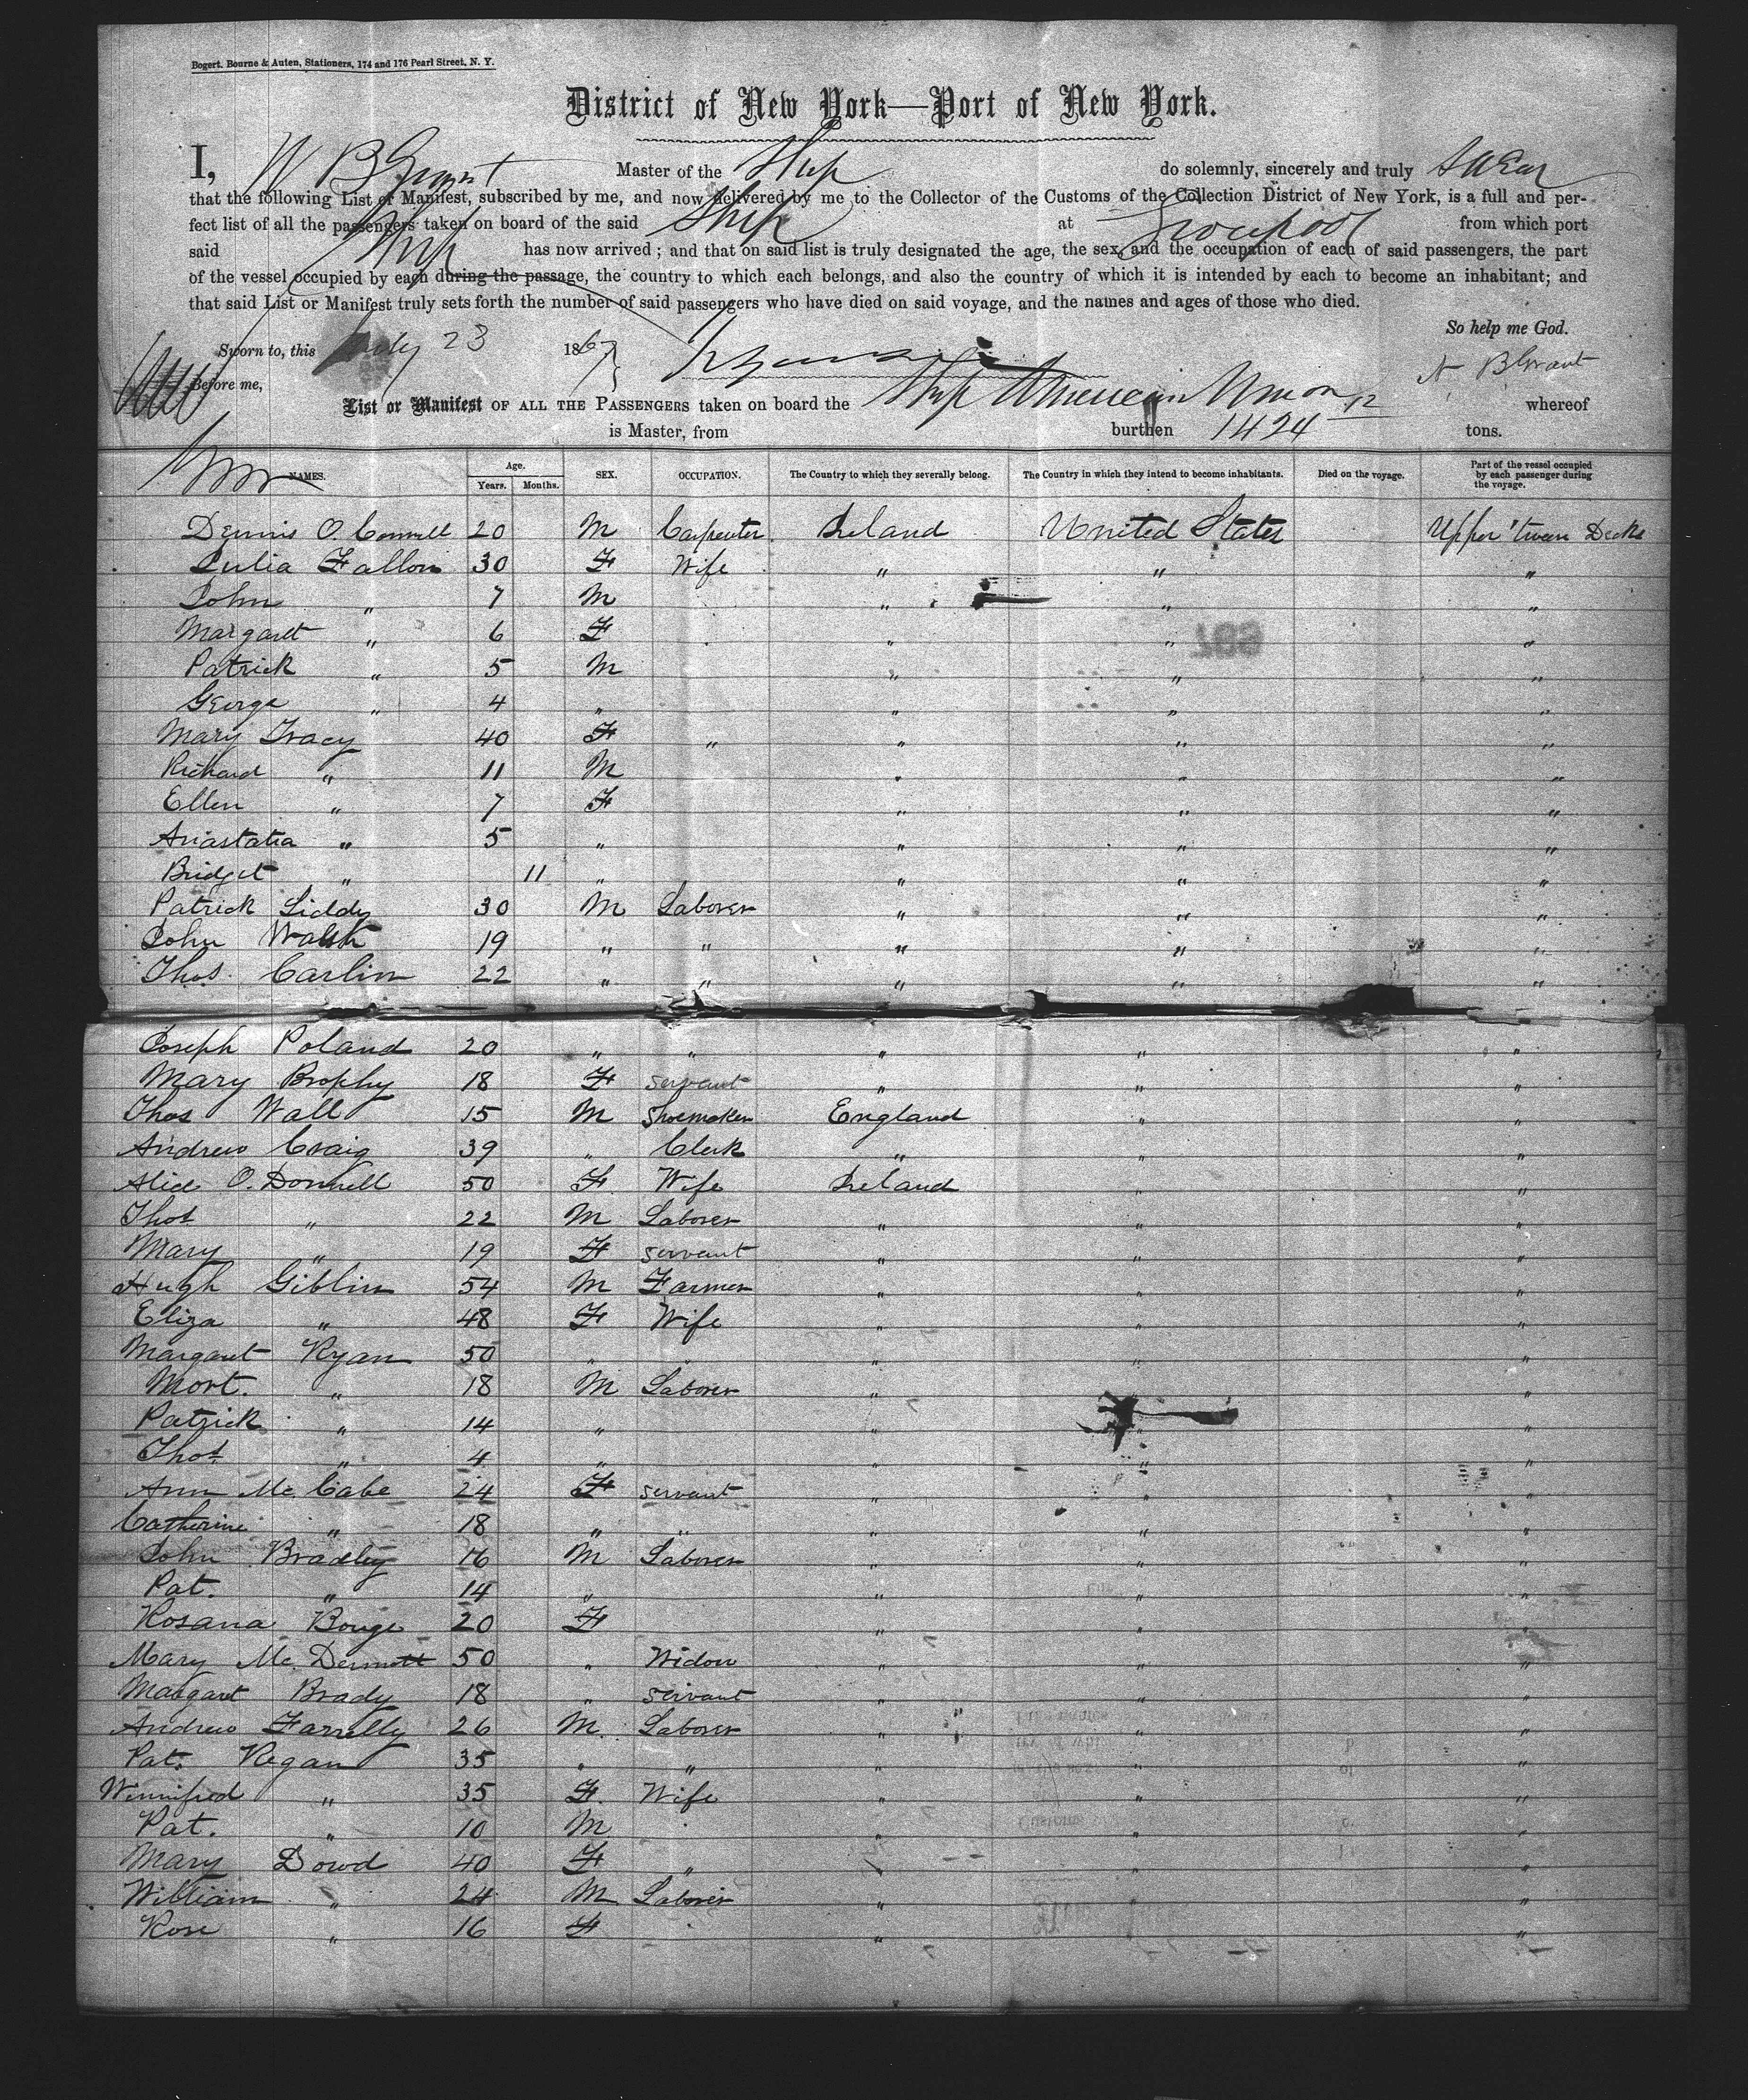 Bogert, Bourne & Auten, Stationers, 174 and 176 Pearl Street, N. Y.
District of New York—Port of New York.
I, W B Grant Master of the Ship do solemnly, sincerely and truly swear
that the following List or Manifest, subscribed by me, and now delivered by me to the Collector of the Customs of the Collection District of New York, is a full and per-
fect list of all the passengers taken on board of the said Ship at Liverpool from which port
said Ship has now arrived; and that on said list is truly designated the age, the sex, and the occupation of each of said passengers, the part
of the vessel occupied by each during the passage, the country to which each belongs, and also the country of which it is intended by each to become an inhabitant; and
that said List or Manifest truly sets forth the number of said passengers who have died on said voyage, and the names and ages of those who died.
So help me God.
Sworn to, this July 23 1867
Before me,
W B Grant
List or Manifest OF ALL THE PASSENGERS taken on board the Ship American Union whereof
is Master, from burthen 1424 tons.
NAMES. Age. Years. Months. SEX. OCCUPATION. The Country to which they severally belong. The Country in which they intend to become inhabitants. Died on the voyage. Part of the vessel occupied by each passenger during the voyage.
Dennis O. Connell 20 M Carpenter Ireland United States Upper 'tween Decks
Julia Fallon 30 F Wife " " "
John " 7 M " " "
Margaret " 6 F " " "
Patrick " 5 M " " "
George " 4 " " " "
Mary Tracy 40 F " " " "
Richard " 11 M " " "
Ellen " 7 F " " "
Anastatia " 5 " " " "
Bridget " 11 " " " "
Patrick Liddy 30 M Laborer " " "
John Walsh 19 " " " " "
Thos. Carlin 22 " " " " "
Joseph Poland 20 " " " " "
Mary Brophy 18 F servant " " "
Thos Wall 15 M Shoemaker England " "
Andrew Craig 39 " Clerk " " "
Alice O. Donnell 50 F Wife Ireland " "
Thos " 22 M Laborer " " "
Mary " 19 F servant " " "
Hugh Giblin 54 M Farmer " " "
Eliza " 48 F Wife " " "
Margaret Ryan 50 " " " " "
Mort. " 18 M Laborer " " "
Patrick " 14 " " " "
Thos " 4 " " " "
Ann Mc. Cabe 24 F servant " " "
Catherine " 18 " " " " "
John Bradley 16 M Laborer " " "
Pat. " 14 " " " "
Rosana Bouge 20 F " " "
Mary Mc. Dermott 50 " Widow " " "
Margaret Brady 18 " servant " " "
Andrew Farrelly 26 M Laborer " " "
Pat. Regan 35 " " " " "
Winnifred " 35 F Wife " " "
Pat. " 10 M " " "
Mary Dowd 40 F " " " "
William " 24 M Laborer " " "
Rose " 16 F " "